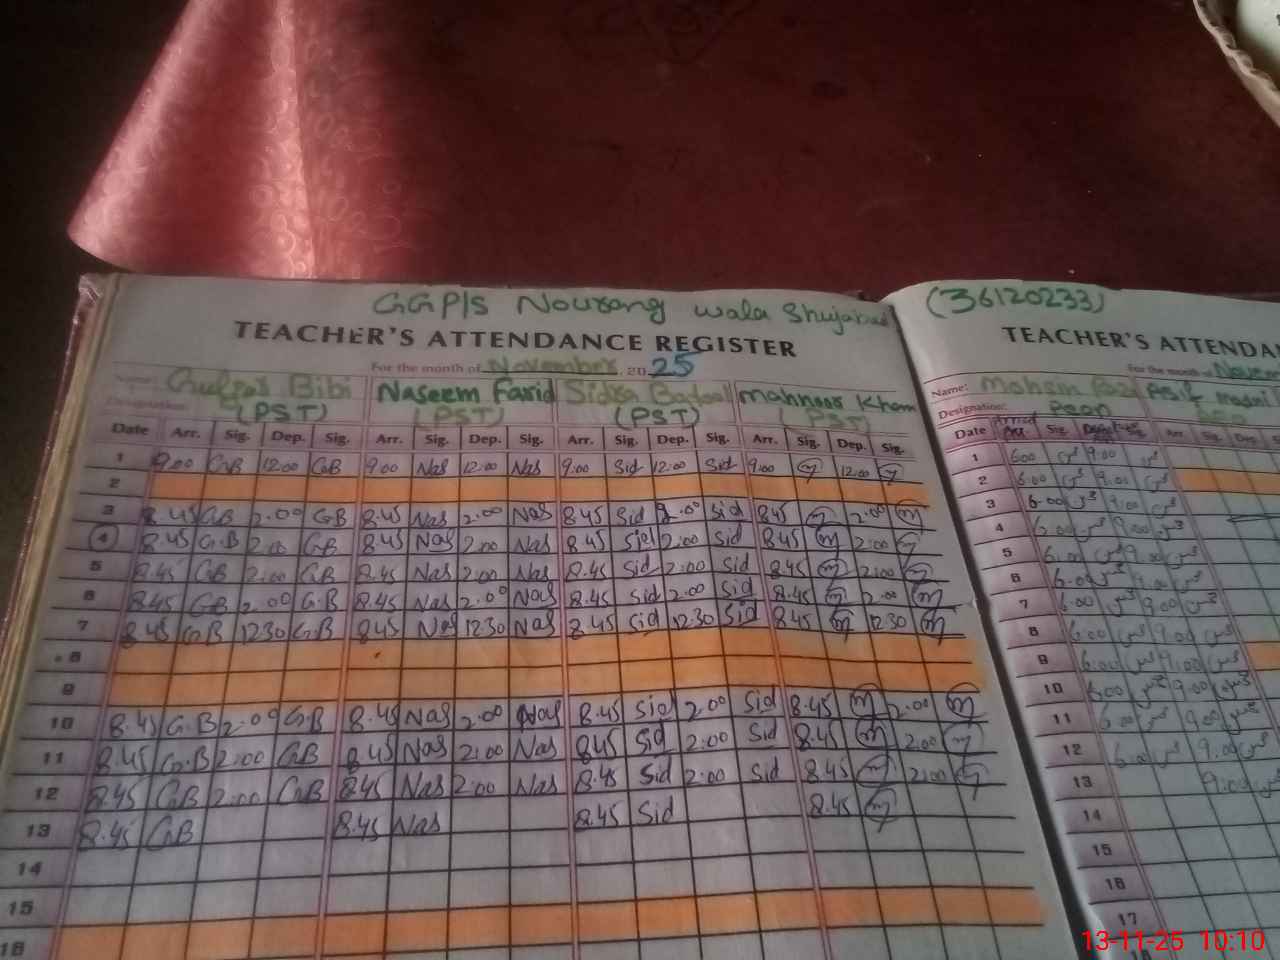 GGP/S Nourang wala Shujabad
TEACHER'S ATTENDANCE REGISTER
For the month of November 2025
Name: Gulzar Bibi Naseem Farid Sidra Batool Mahnoor Khan
Designation: (PST) (PST) (PST) (PST)
Date Arr. Sig. Dep. Sig. Arr. Sig. Dep. Sig. Arr. Sig. Dep. Sig. Arr. Sig. Dep. Sig.
1 9.00 GB 12.00 GB 9.00 Nas 12.00 Nas 9.00 Sid 12.00 Sid 9.00 m 12.00 m
2
3 8.45 GB 2.00 GB 8.45 Nas 2.00 Nas 8.45 Sid 2.00 Sid 8.45 m 2.00 m
4 8.45 G.B 2.00 GB 8.45 Nas 2.00 Nas 8.45 Sid 2.00 Sid 8.45 m 2.00 m
5 8.45 GB 2.00 GB 8.45 Nas 2.00 Nas 8.45 Sid 2.00 Sid 8.45 m 2.00 m
6 8.45 GB 2.00 G.B 8.45 Nas 2.00 Nas 8.45 Sid 2.00 Sid 8.45 m 2.00 m
7 8.45 GB 12.30 GB 8.45 Nas 12.30 Nas 8.45 Sid 12.30 Sid 8.45 m 12.30 m
8
9
10 8.45 G.B 2.00 GB 8.45 Nas 2.00 Nas 8.45 Sid 2.00 Sid 8.45 m 2.00 m
11 8.45 G.B 2.00 GB 8.45 Nas 2.00 Nas 8.45 Sid 2.00 Sid 8.45 m 2.00 m
12 8.45 GB 2.00 GB 8.45 Nas 2.00 Nas 8.45 Sid 2.00 Sid 8.45 m 2.00 m
13 8.45 GB 8.45 Nas 8.45 Sid 8.45 m
14
15
16
(36120233)
TEACHER'S ATTENDA
For the month of Novem
Name: Mohsin Asif
Designation:
Date Arr. Sig. Sig. Arr. Sig. Dep.
1 6.00 9.00
2 6.00 9.00
3 6.00 9.00
4 6.00 9.00
5 6.00 9.00
6 6.00 9.00
7 6.00 9.00
8 6.00 9.00
9 6.00 9.00
10 6.00 9.00
11 6.00 9.00
12 6.00 9.00
13 9.00
14
15
16
17
13-11-25 10:10